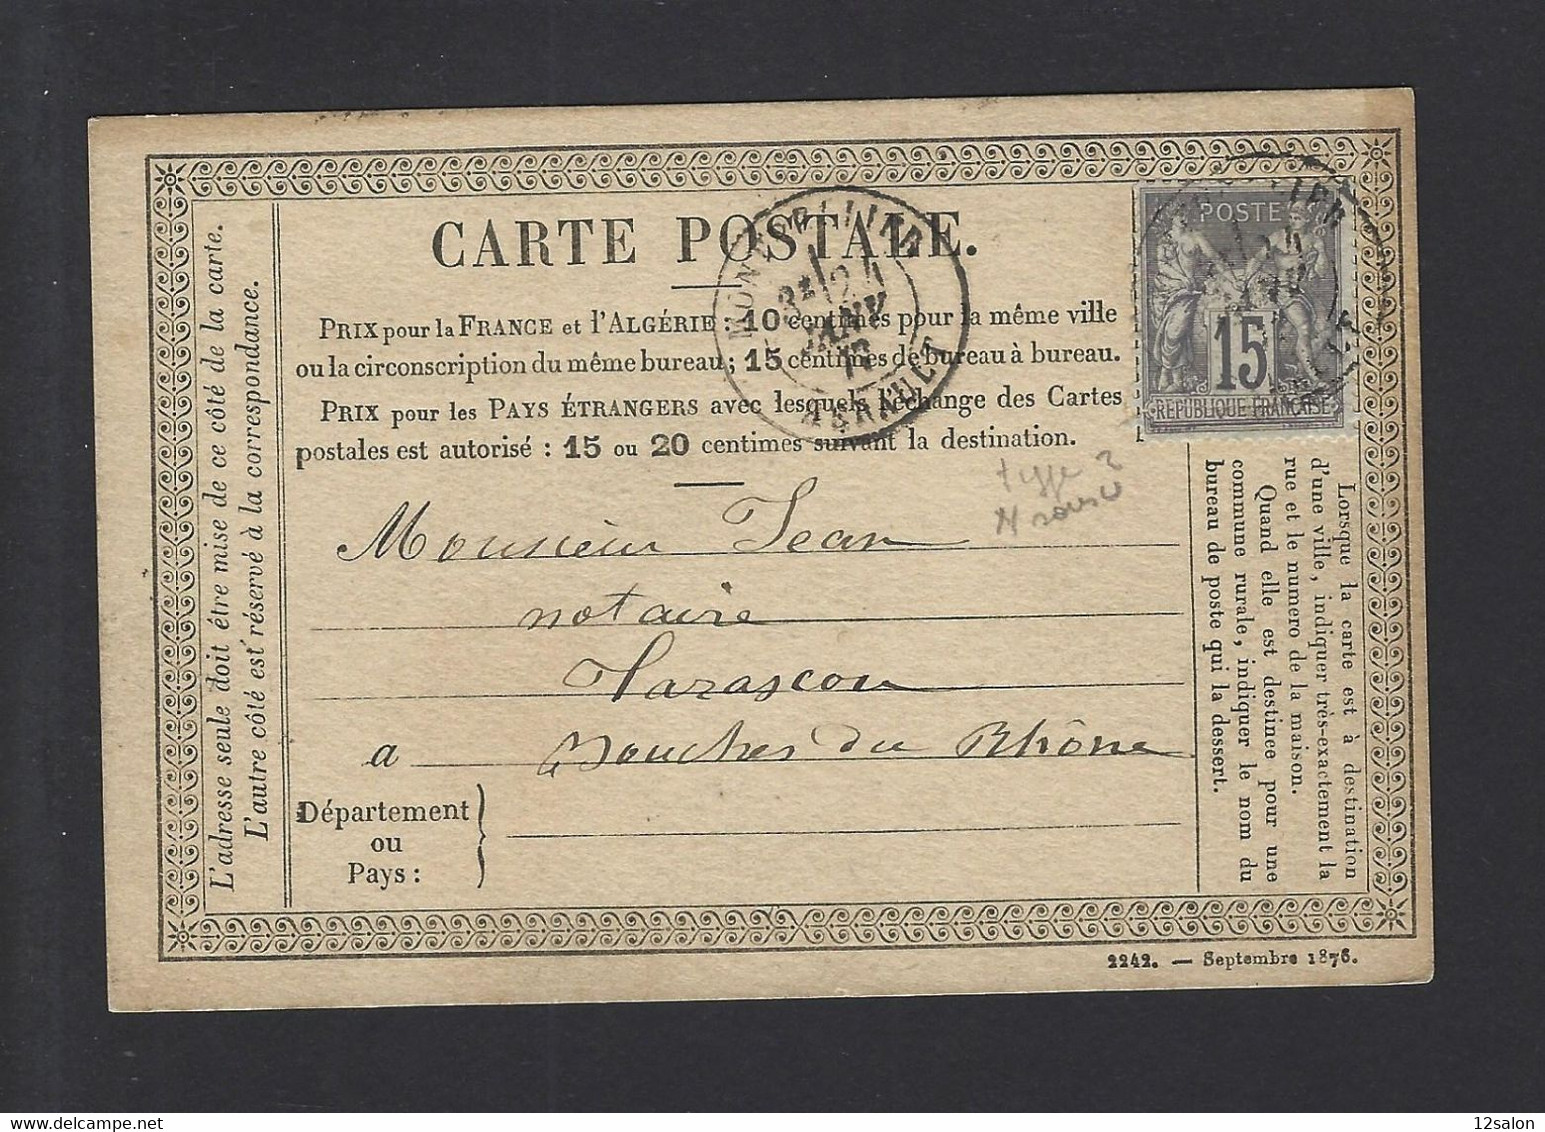 CARTE POSTALE.
PRIX pour la FRANCE et l'ALGÉRIE : 10 centimes pour la même ville
ou la circonscription du même bureau; 15 centimes de bureau à bureau.
PRIX pour les PAYS ÉTRANGERS avec lesquels l'échange des Cartes
postales est autorisé : 15 ou 20 centimes suivant la destination.
MONTPELLIER
3E
24
JANV
77
HERAULT
POSTES
15
REPUBLIQUE FRANCAISE
type 2
N sous U
Monsieur Jean
notaire
Tarascon
a Bouches du Rhône
Département
ou
Pays :
L'adresse seule doit être mise de ce côté de la carte.
L'autre côté est réservé à la correspondance.
Lorsque la carte est à destination
d'une ville, indiquer très-exactement la
rue et le numero de la maison.
Quand elle est destinee pour une
commune rurale, indiquer le nom du
bureau de poste qui la dessert.
2242. — Septembre 1876.
12salon